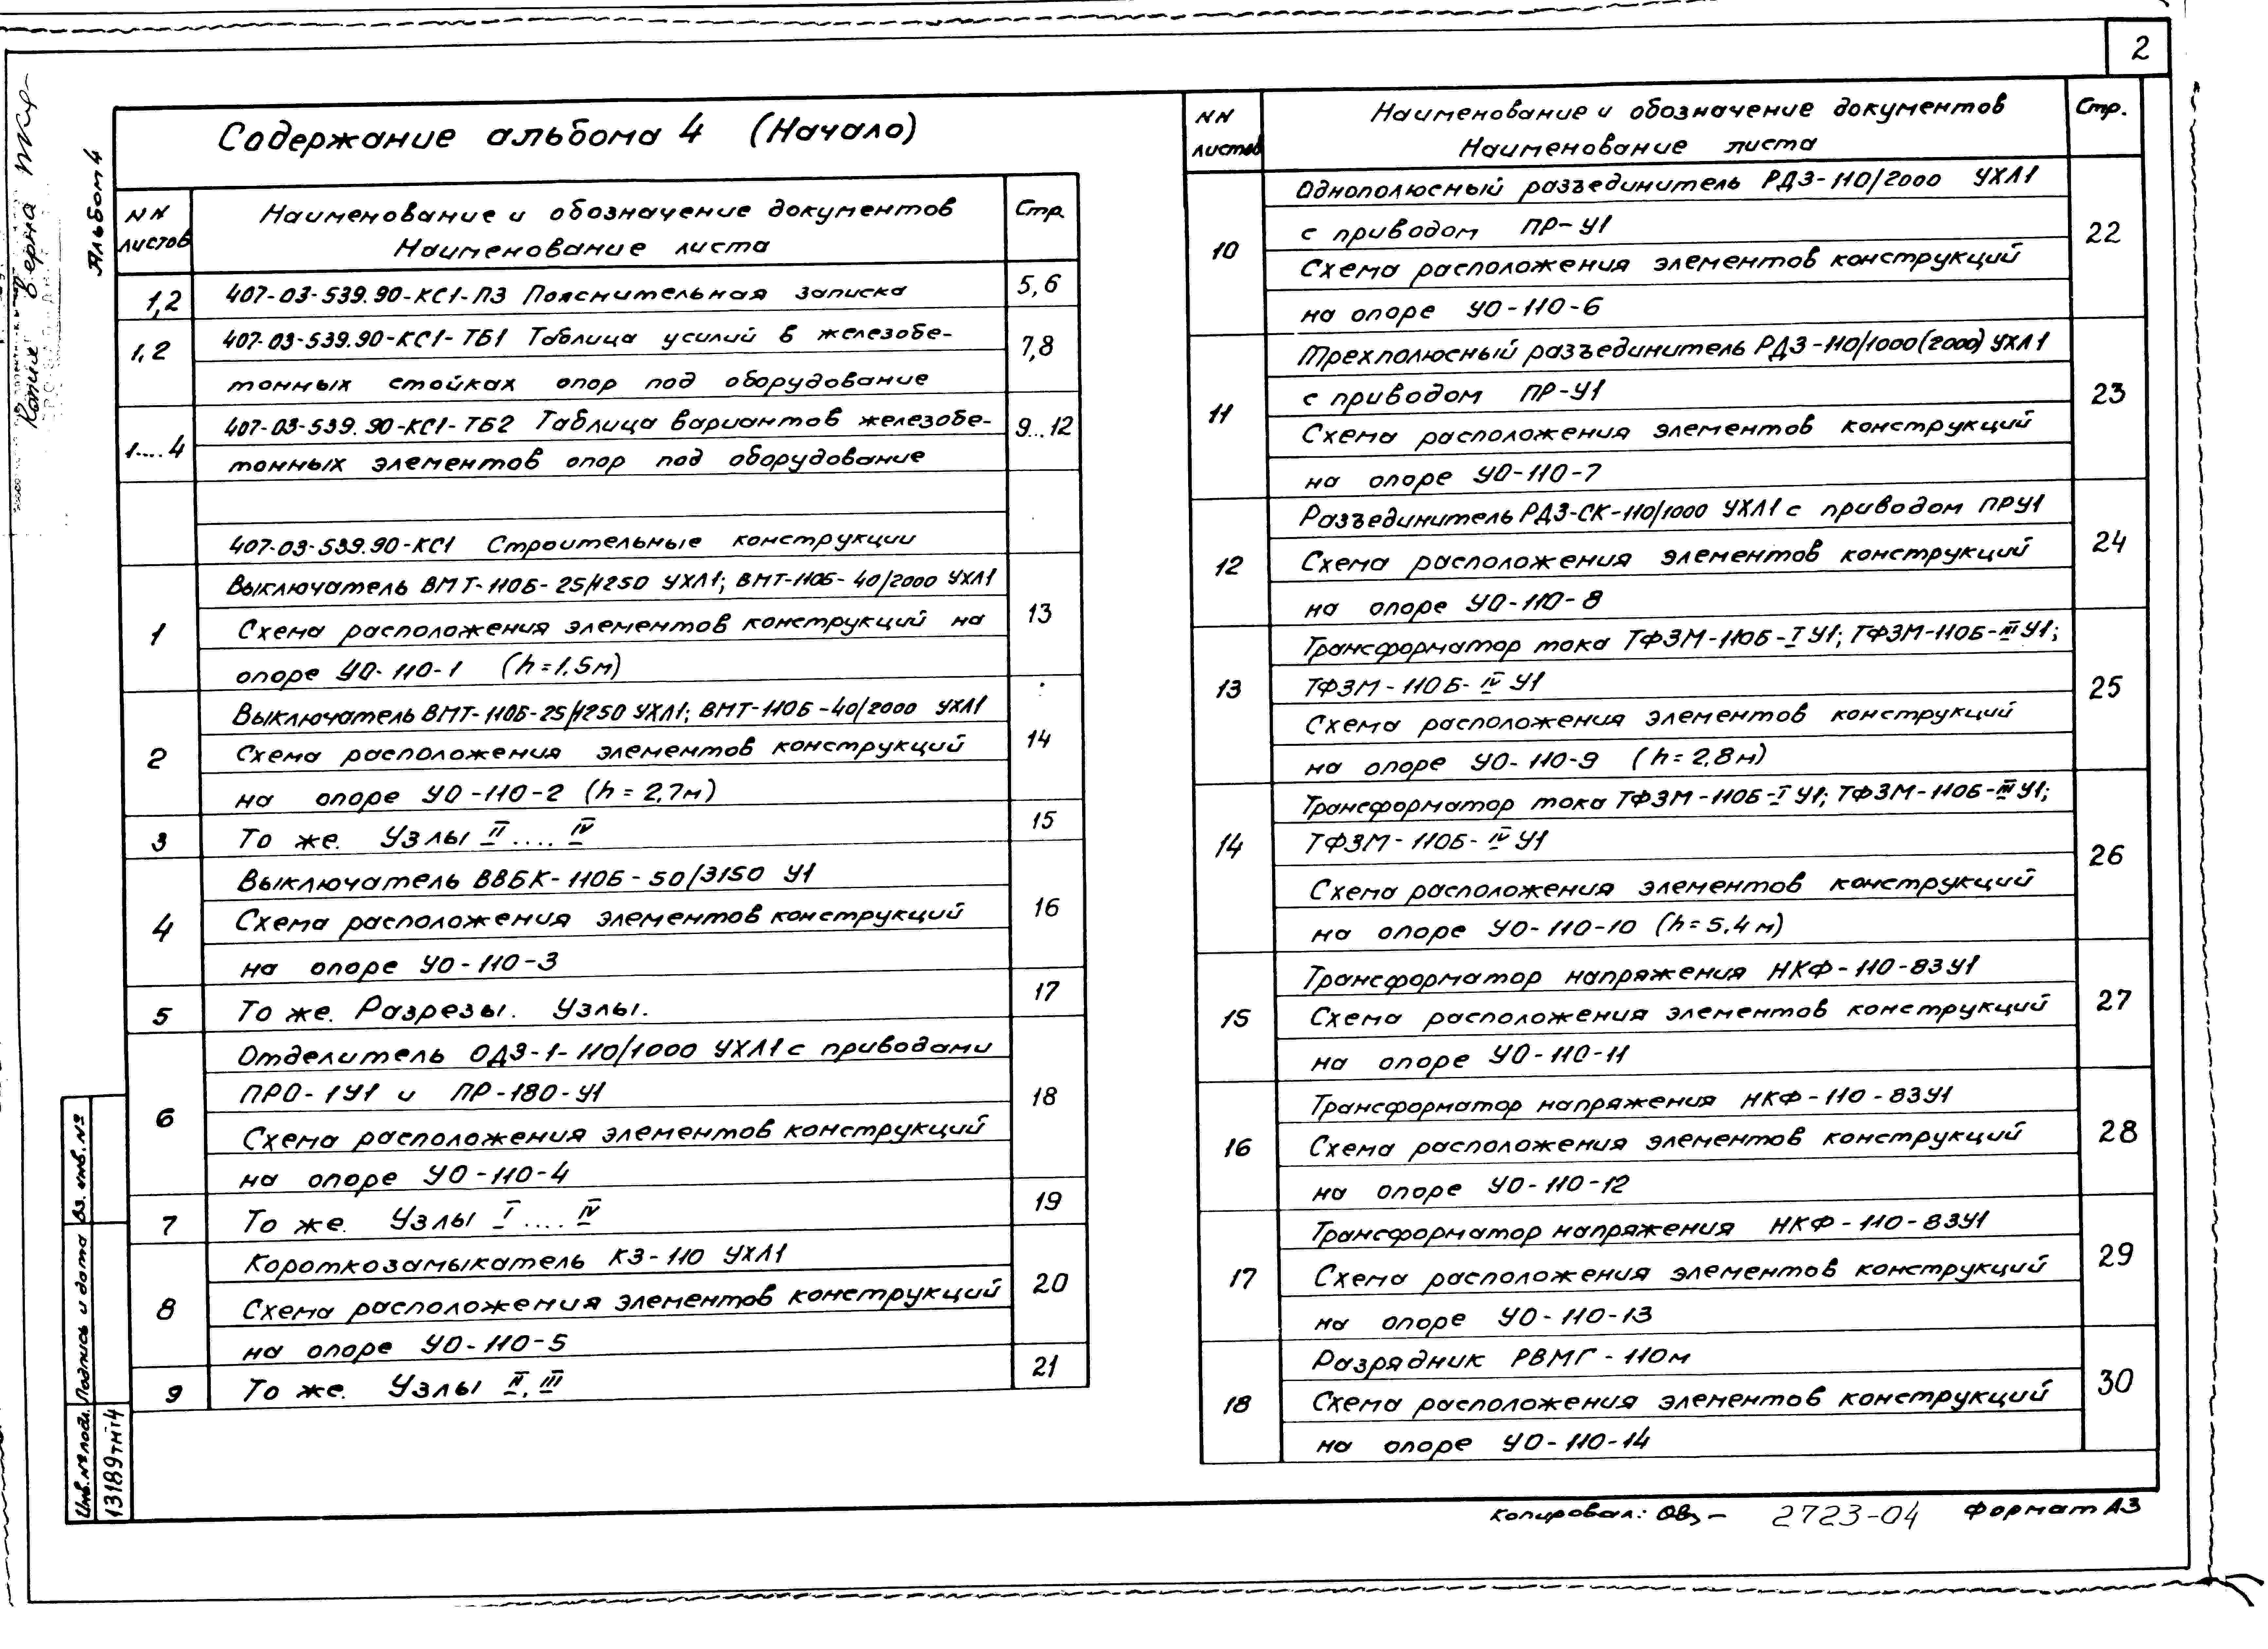 2
Копия верна
Альбом 4
Содержание альбома 4 (Начало)
NN листов
Наименование и обозначение документов
Наименование листа
Стр.
1,2
407-03-539.90-КС1-ПЗ Пояснительная записка
5,6
1,2
407-03-539.90-КС1-ТБ1 Таблица усилий в железобе-
тонных стойках опор под оборудование
7,8
1....4
407-03-539.90-КС1-ТБ2 Таблица вариантов железобе-
тонных элементов опор под оборудование
9...12
407-03-539.90-КС1 Строительные конструкции
1
Выключатель ВМТ-110Б-25/1250 УХЛ1; ВМТ-110Б-40/2000 УХЛ1
Схема расположения элементов конструкций на
опоре УО-110-1 (h=1,5м)
13
2
Выключатель ВМТ-110Б-25/1250 УХЛ1; ВМТ-110Б-40/2000 УХЛ1
Схема расположения элементов конструкций
на опоре УО-110-2 (h=2,7м)
14
3
То же. Узлы II....IV
15
4
Выключатель ВВБК-110Б-50/3150 У1
Схема расположения элементов конструкций
на опоре УО-110-3
16
5
То же. Разрезы. Узлы.
17
6
Отделитель ОДЗ-1-110/1000 УХЛ1 с приводами
ПРО-1У1 и ПР-180-У1
Схема расположения элементов конструкций
на опоре УО-110-4
18
7
То же. Узлы I....IV
19
8
Короткозамыкатель КЗ-110 УХЛ1
Схема расположения элементов конструкций
на опоре УО-110-5
20
9
То же. Узлы II, III
21
NN листов
Наименование и обозначение документов
Наименование листа
Стр.
10
Однополюсный разъединитель РДЗ-110/2000 УХЛ1
с приводом ПР-У1
Схема расположения элементов конструкций
на опоре УО-110-6
22
11
Трехполюсный разъединитель РДЗ-110/1000(2000) УХЛ1
с приводом ПР-У1
Схема расположения элементов конструкций
на опоре УО-110-7
23
12
Разъединитель РДЗ-СК-110/1000 УХЛ1 с приводом ПРУ1
Схема расположения элементов конструкций
на опоре УО-110-8
24
13
Трансформатор тока ТФЗМ-110Б-I У1; ТФЗМ-110Б-III У1;
ТФЗМ-110Б-IV У1
Схема расположения элементов конструкций
на опоре УО-110-9 (h=2,8м)
25
14
Трансформатор тока ТФЗМ-110Б-I У1; ТФЗМ-110Б-III У1;
ТФЗМ-110Б-IV У1
Схема расположения элементов конструкций
на опоре УО-110-10 (h=5,4м)
26
15
Трансформатор напряжения НКФ-110-83У1
Схема расположения элементов конструкций
на опоре УО-110-11
27
16
Трансформатор напряжения НКФ-110-83У1
Схема расположения элементов конструкций
на опоре УО-110-12
28
17
Трансформатор напряжения НКФ-110-83У1
Схема расположения элементов конструкций
на опоре УО-110-13
29
18
Разрядник РВМГ-110м
Схема расположения элементов конструкций
на опоре УО-110-14
30
Вз. инв. №
Подпись и дата
Инв. № подл.
13189тм-т4
Копировал:
2723-04
Формат А3